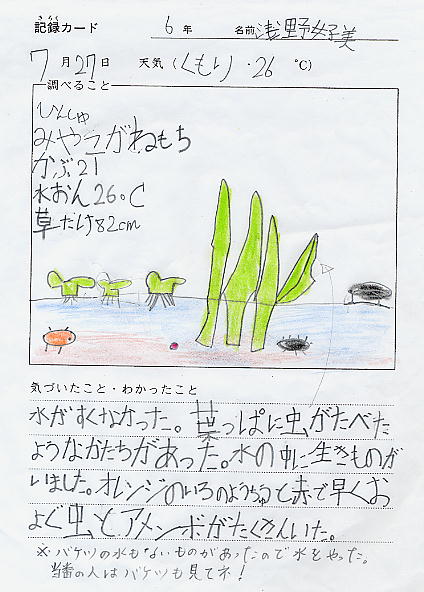 きろく
記録カード 6 年 名前 浅野好美
7 月 27 日 天気 (くもり ・26 ℃)
調べること
ひんしゅ
みやこがねもち
かぶ21
水おん26°C
草たけ82cm
気づいたこと・わかったこと
水がすくなかった。葉っぱに虫がたべた
ようなかたちがあった。水の中に生きものが
いました。オレンジのいろのようちゅうと赤で早くお
よぐ虫と、アメンボがたくさんいた。
※バケツの水もないものがあったので水をやった。
当番の人はバケツも見てネ！